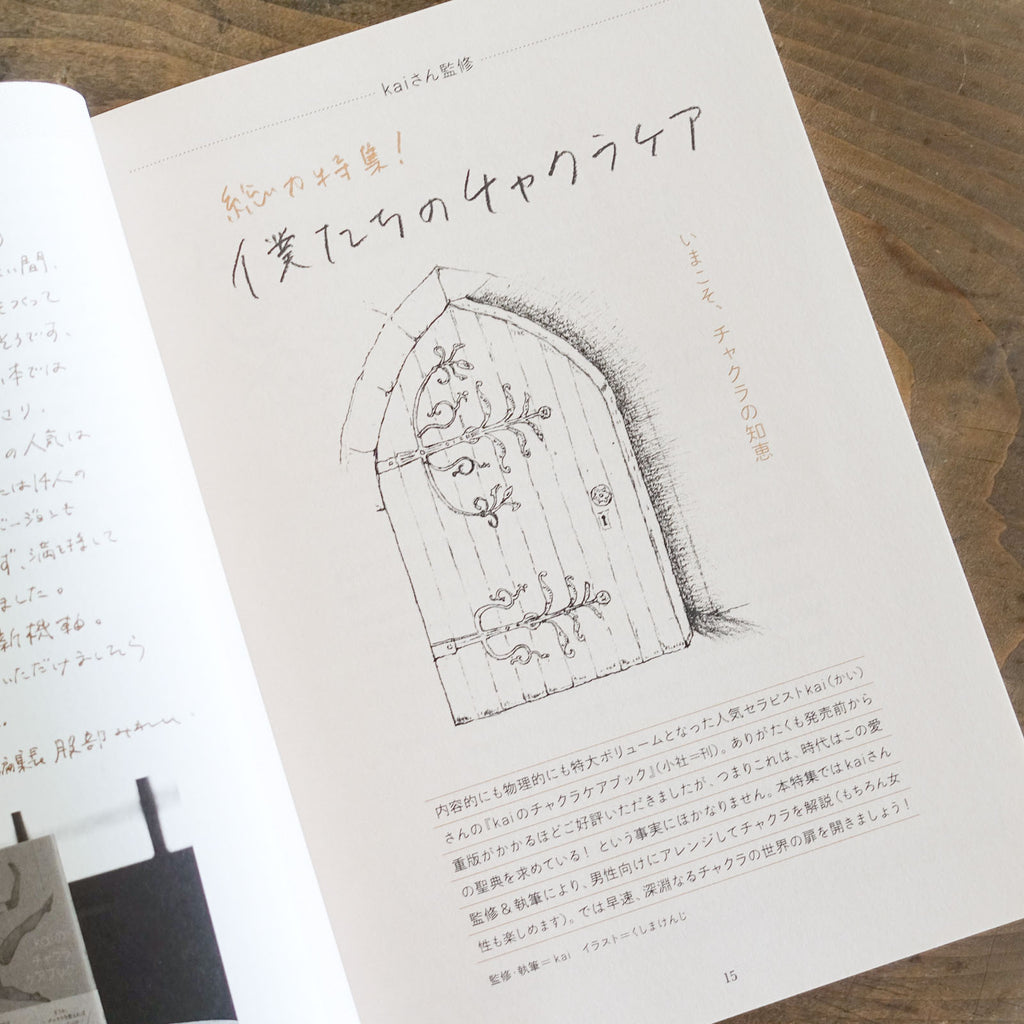 い間、
をつくって
そうです、
本では
さり、
の人気は
には14人の
ず、満を持して
ました。
新機軸。
いただけましたら
編集長 服部みれい
kaiの
チャクラ
ケアブック
kaiさん監修
総力特集!
僕たちのチャクラケア
いまこそ、チャクラの知恵
内容的にも物理的にも特大ボリュームとなった人気セラピストkai(かい)
さんの『kaiのチャクラケアブック』(小社=刊)。ありがたくも発売前から
重版がかかるほどご好評いただきましたが、つまりこれは、時代はこの愛
の聖典を求めている! という事実にほかなりません。本特集ではkaiさん
監修&執筆により、男性向けにアレンジしてチャクラを解説(もちろん女
性も楽しめます)。では早速、深淵なるチャクラの世界の扉を開きましょう!
監修・執筆=kai イラスト=くしまけんじ
15